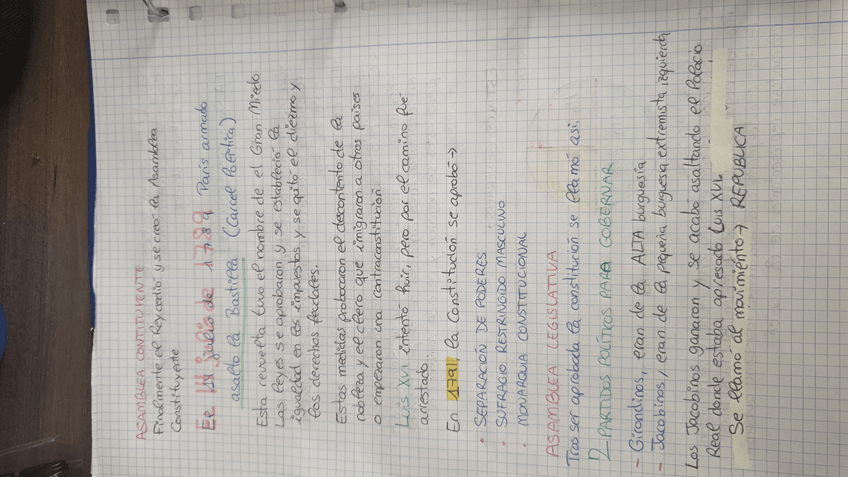 ASAMBLEA CONTITUYENTE
Finalmente el Rey cedió y se creó la Asamblea
Constituyente
El 14 julio de 1789 París armado
asalto la Bastilla (Carcel Política)
Esta revuelta tuvo el nombre de el Gran Miedo
Las leyes se aprobaron y se estableció la
igualdad en los impuestos y se quitó el diezmo y
los derechos feudales.
Estas medidas probocaron el descontento de la
nobleza y el clero que imigraron a otros países
o empezaron una contraconstitución
Luis XVI intentó huir, pero por el camino fue
arrestado.
En 1791, la Constitución se aprobó →
• SEPARACIÓN DE PODERES
• SUFRAGIO RESTRINGIDO MASCULINO
• MONARQUIA CONSTITUCIONAL
ASAMBLEA LEGISLATIVA
Tras ser aprobada la constitución se llamó asi.
2 PARTIDOS POLÍTICOS PARA GOBERNAR
- Girondinos, eran de la ALTA burguesía
- Jacobinos, eran de la pequeña burguesa extremista izquierda
Los Jacobinos ganaron y se acabo asaltando el Palacio
Real donde estaba apresado Luis XVI.
Se llamó al movimiento → REPUBLICA